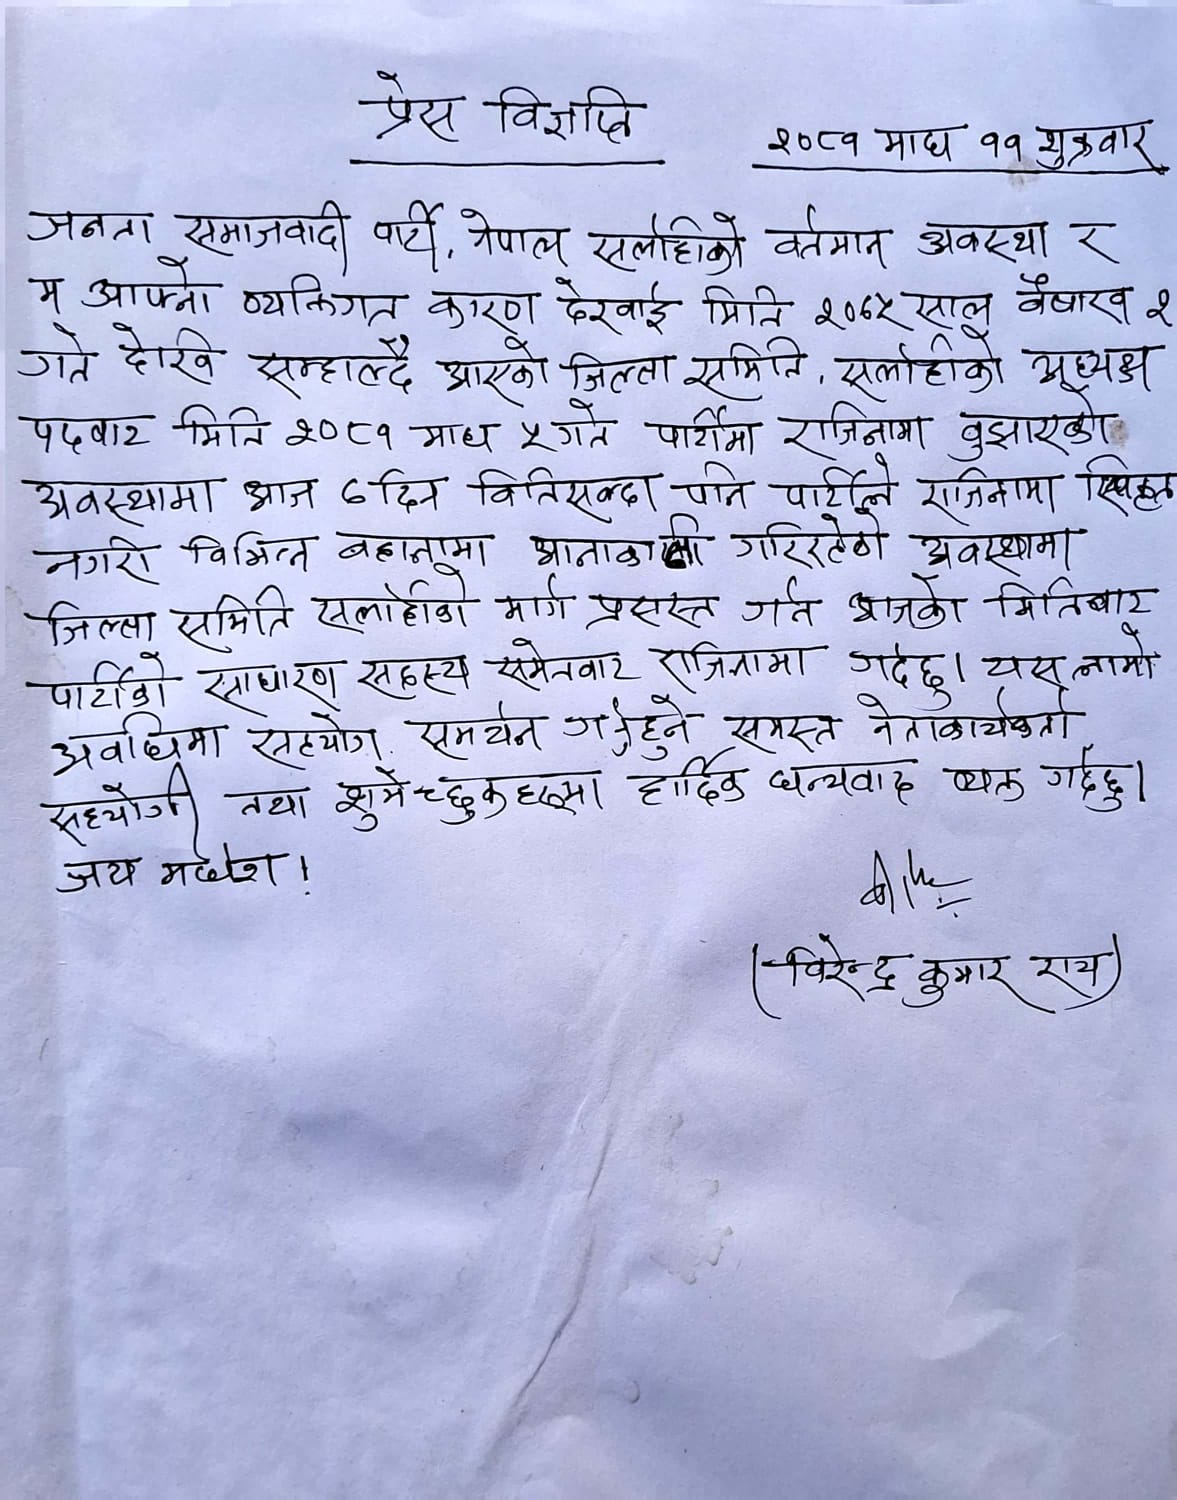 प्रेस विज्ञप्ति
२०८१ माघ ११ शुक्रवार
जनता समाजवादी पार्टी, नेपाल सर्लाहीको वर्तमान अवस्था र
म आफ्नो व्यक्तिगत कारण देखाई मिति २०७५ साल वैषाख २
गते देखि सम्हाल्दै आएको जिल्ला समिति, सर्लाहीको अध्यक्ष
पदबाट मिति २०८१ माघ ५ गते पार्टीमा राजिनामा बुझाएको
अवस्थामा आज ६ दिन वितिसक्दा पनि पार्टीले राजिनामा स्विकृत
नगरी विभिन्न बहानामा आनाकानी गरिरहेको अवस्थामा
जिल्ला समिति सर्लाहीको मार्ग प्रसस्त गर्न आजको मितिबाट
पार्टीको साधारण सदस्य समेतबाट राजिनामा गर्दछु। यस लामो
अवधिमा सहयोग, समर्थन गर्नुहुने समस्त नेताकार्यकर्ता
सहयोगी तथा शुभेच्छुकहरूमा हार्दिक धन्यवाद व्यक्त गर्दछु।
जय मधेश!
(विरेन्द्र कुमार राय)